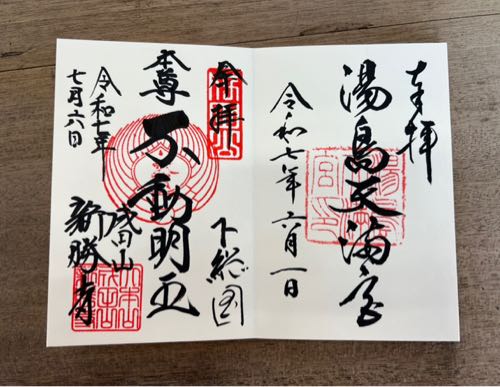 奉拝
湯島天満宮
令和七年六月一日
奉拝
下総国
本尊
不動明王
成田山
新勝寺
令和七年
七月六日